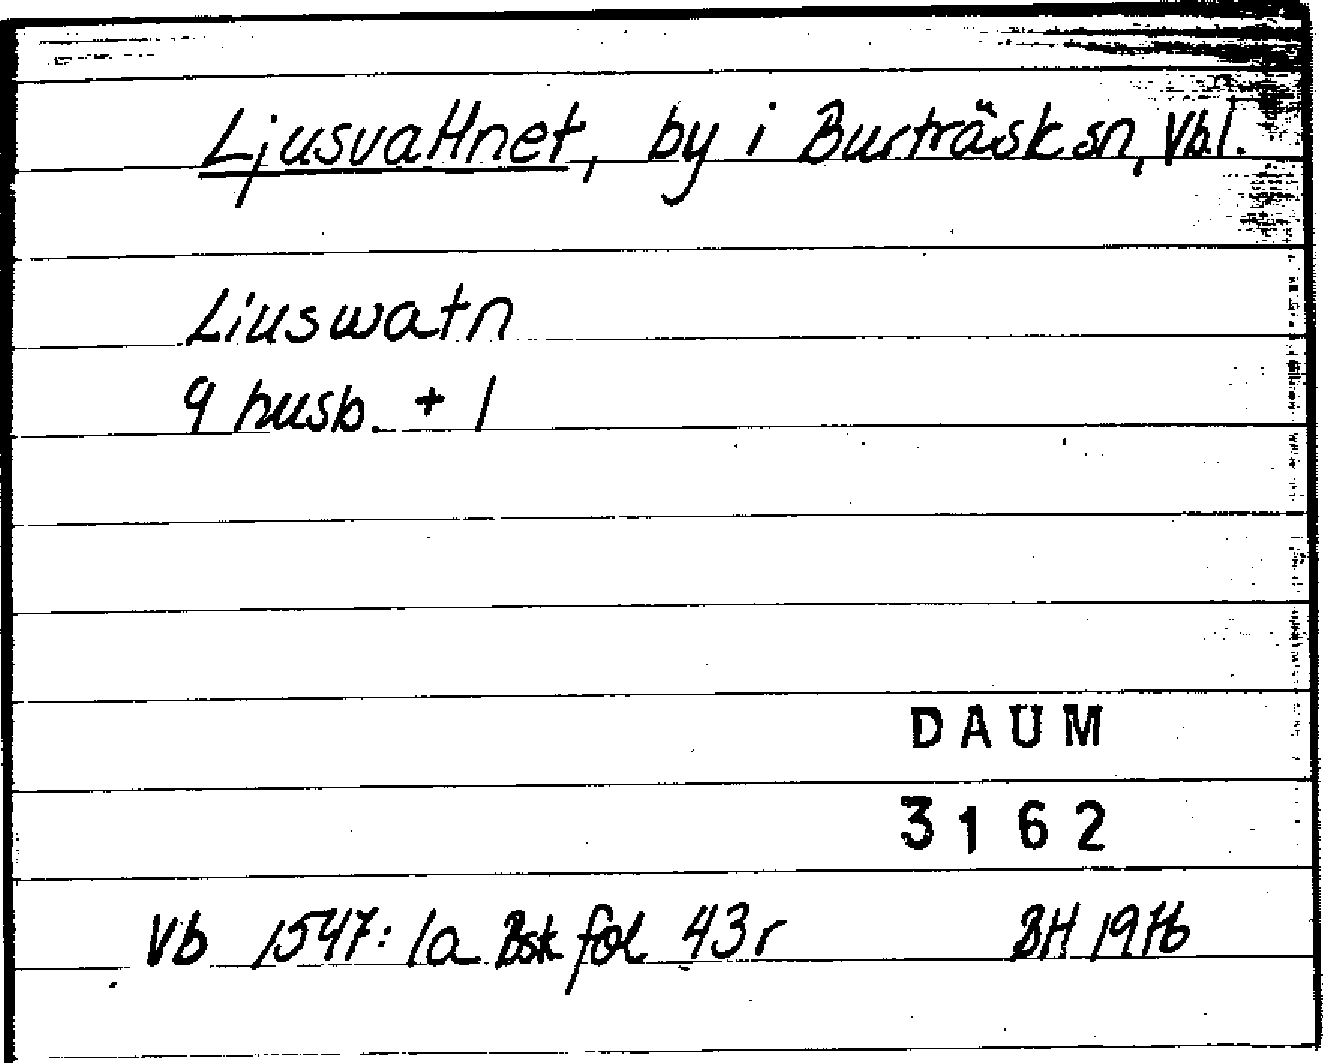 Ljusvattnet, by i Burträsk sn, Vbl.
Liuswatn
9 husb. + 1
DAUM
3162
Vb 1547: 1a Bsk fol 43r BH 1976